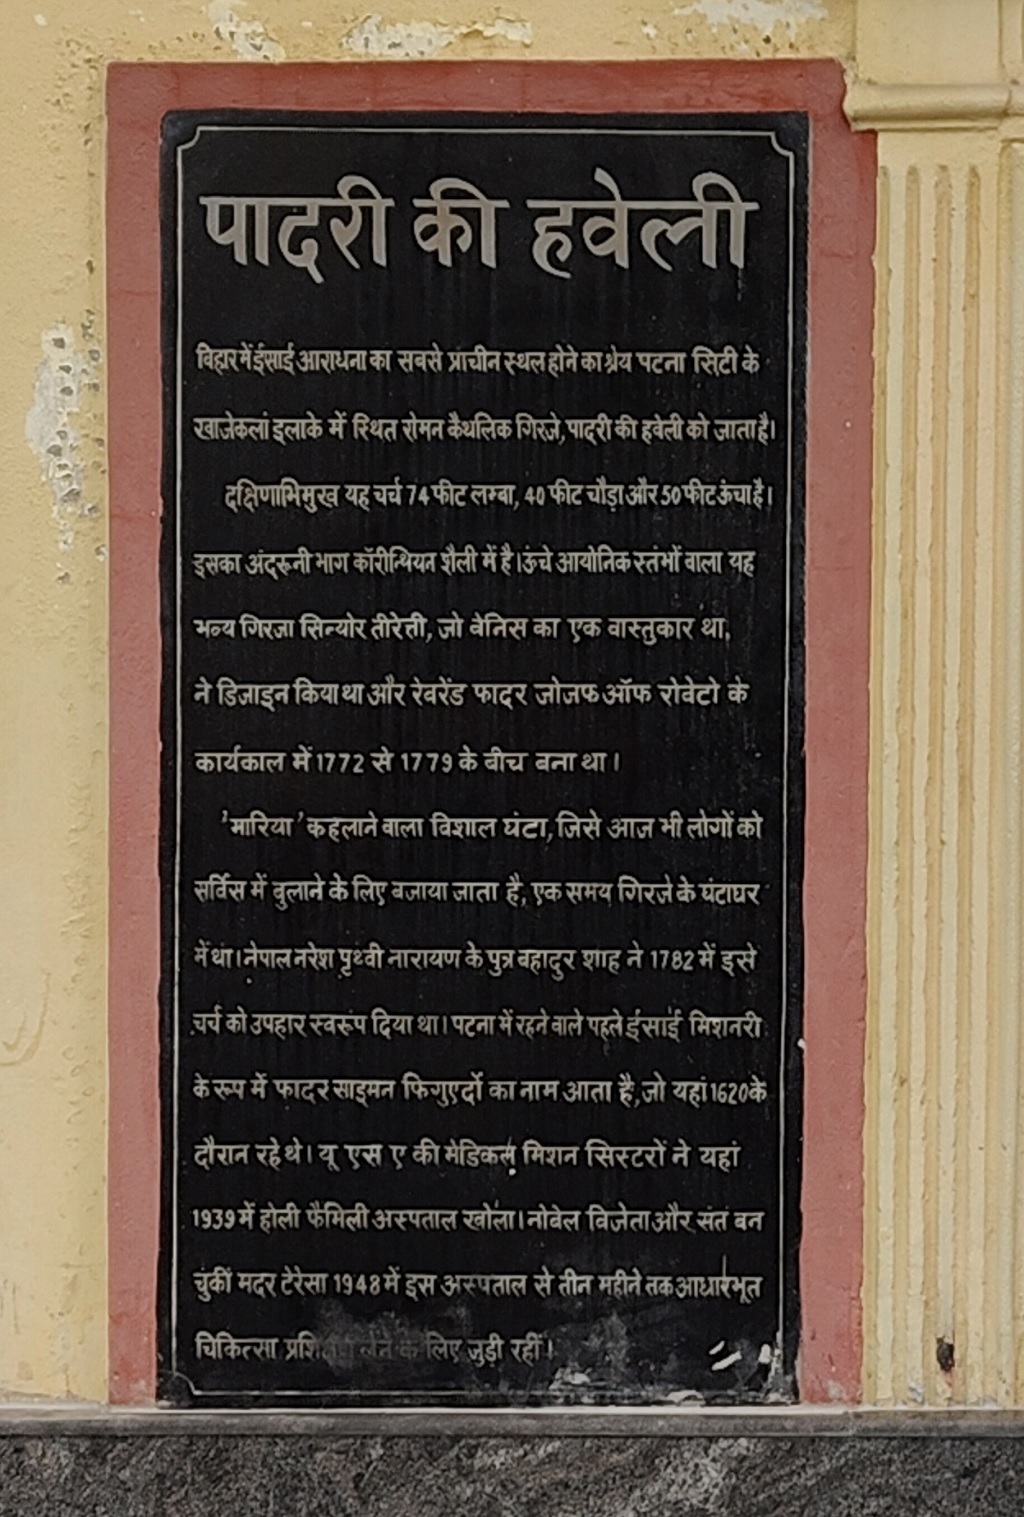 पादरी की हवेली
बिहार में ईसाई आराधना का सबसे प्राचीन स्थल होने का श्रेय पटना सिटी के
खाजेकलां इलाके में स्थित रोमन कैथलिक गिरजे, पादरी की हवेली को जाता है।
दक्षिणाभिमुख यह चर्च 74 फीट लम्बा, 40 फीट चौड़ा और 50 फीट ऊंचा है।
इसका अंदरूनी भाग कॉरीन्थियन शैली में है। ऊंचे आयोनिक स्तंभों वाला यह
भव्य गिरजा सिन्योर तीरेत्ती, जो वेनिस का एक वास्तुकार था,
ने डिजाइन किया था और रेवरेंड फादर जोजफ ऑफ रोवेटो के
कार्यकाल में 1772 से 1779 के बीच बना था।
'मारिया' कहलाने वाला विशाल घंटा, जिसे आज भी लोगों को
सर्विस में बुलाने के लिए बजाया जाता है, एक समय गिरजे के घंटाघर
में था। नेपाल नरेश पृथ्वी नारायण के पुत्र बहादुर शाह ने 1782 में इसे
चर्च को उपहार स्वरूप दिया था। पटना में रहने वाले पहले ईसाई मिशनरी
के रूप में फादर साइमन फिगुएर्दो का नाम आता है, जो यहां 1620 के
दौरान रहे थे। यू एस ए की मेडिकल मिशन सिस्टरों ने यहां
1939 में होली फैमिली अस्पताल खोला। नोबेल विजेता और संत बन
चुकीं मदर टेरेसा 1948 में इस अस्पताल से तीन महीने तक आधारभूत
चिकित्सा के लिए जुड़ी रहीं।